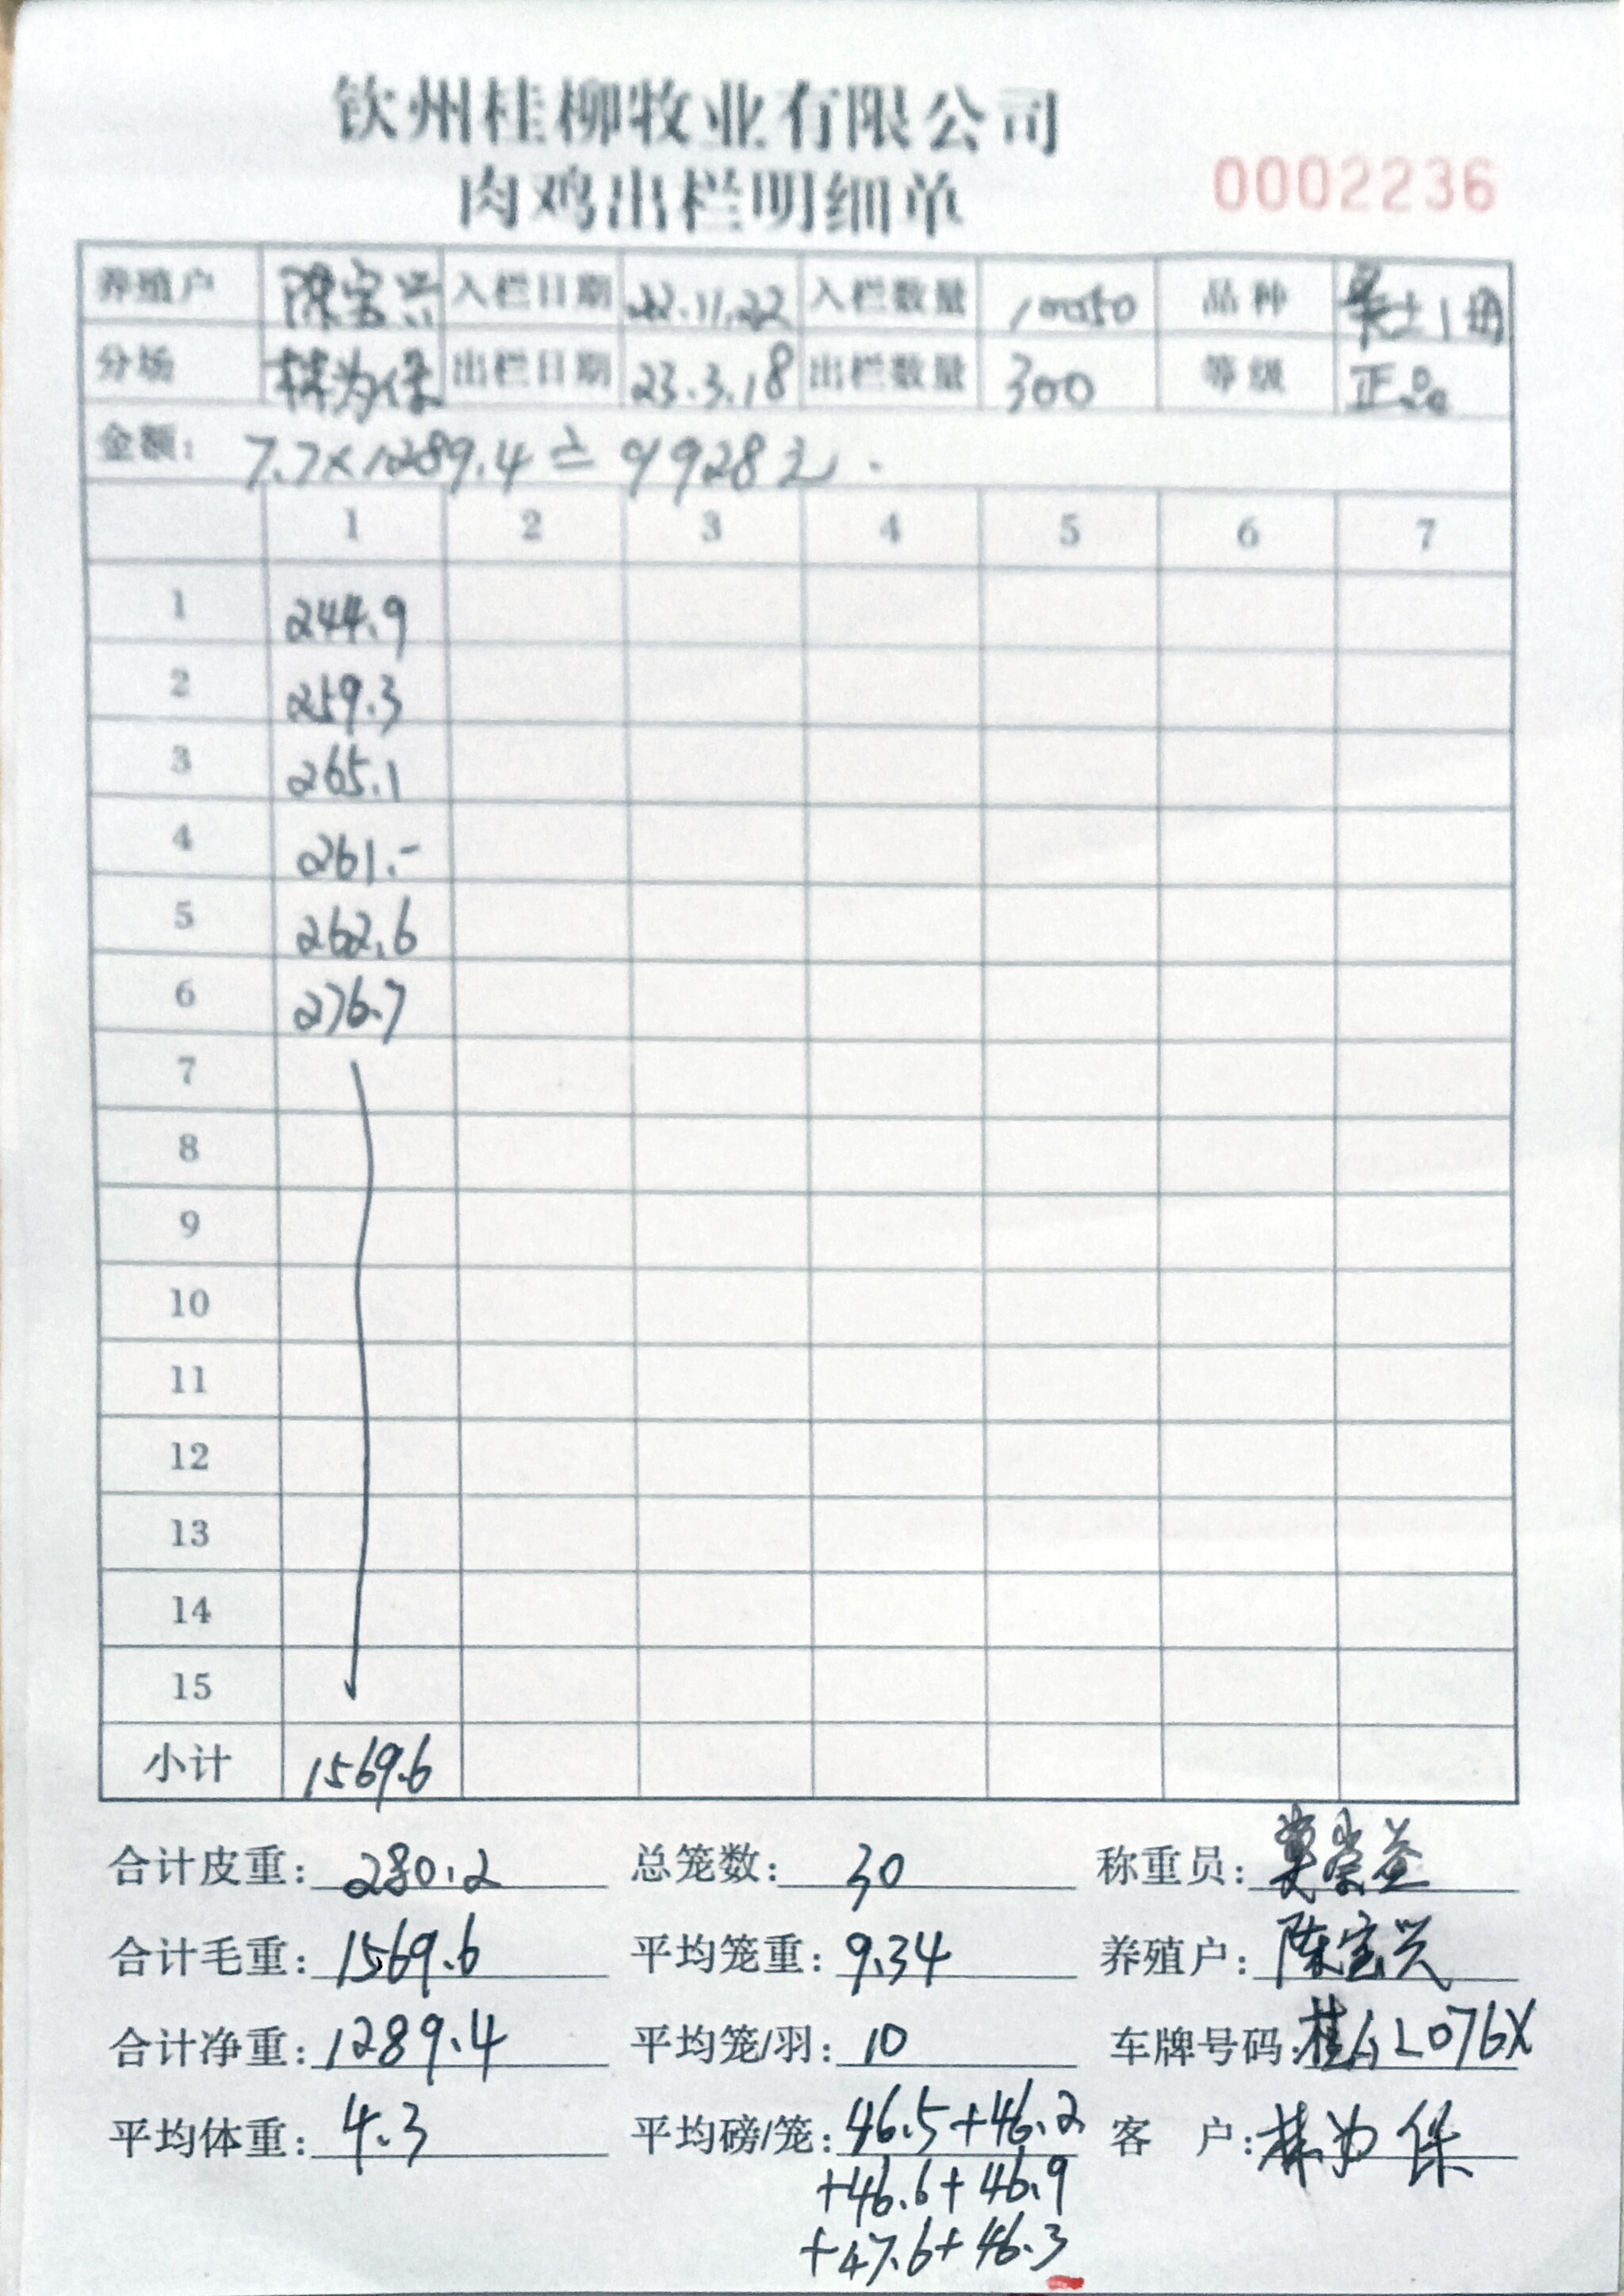 钦州桂柳牧业有限公司
肉鸡出栏明细单
0002236
养殖户 陈宝兴 入栏日期 22.11.22 入栏数量 10050 品种
分场 林为保 出栏日期 23.3.18 出栏数量 300 等级 正品
金额: 7.7×1289.4≐9928元.
1 2 3 4 5 6 7
1 244.9
2 259.3
3 265.1
4 261.-
5 262.6
6 276.7
7
8
9
10
11
12
13
14
15
小计 1569.6
合计皮重: 280.2 总笼数: 30 称重员:
合计毛重: 1569.6 平均笼重: 9.34 养殖户: 陈宝兴
合计净重: 1289.4 平均笼/羽: 10 车牌号码: L076X
平均体重: 4.3 平均磅/笼: 46.5+46.2 客 户: 林为保
+46.6+46.9
+47.6+46.3